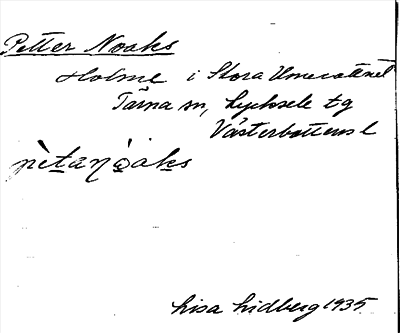 Petter Noaks
Holme i Stora Umevattnet
Tärna sn, Lycksele tg
Västerbottens l
pètanòaks
Lisa Lidberg 1935